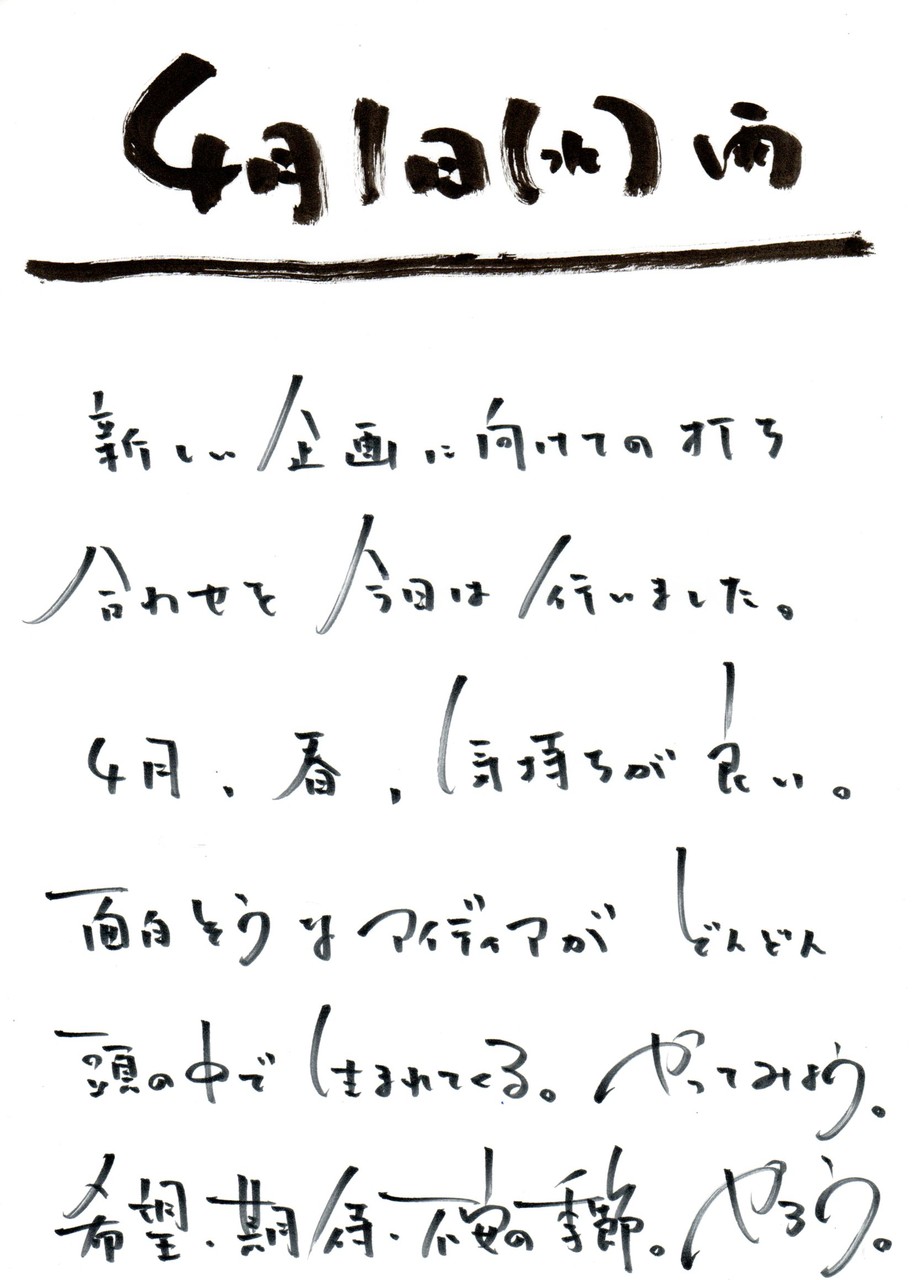 4月1日(水) 雨
新しい企画に向けての打ち
合わせを今日は行いました。
4月、春、気持ちが良い。
面白そうなアイディアがどんどん
頭の中で生まれてくる。やってみよう。
希望・期待・不安の季節。やろう。